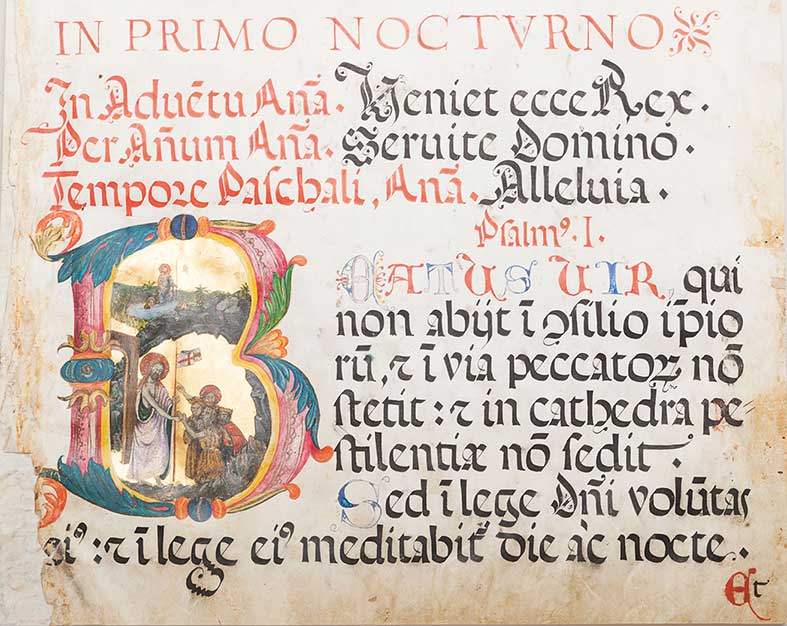 IN PRIMO NOCTVRNO
In Aduẽtu Anã. Veniet ecce Rex.
Per Añum Anã. Seruite Domino.
Tempore Paſchali, Anã. Alleluia.
Pſalmꝰ. I.
BEATUS UIR, qui
non abijt ĩ ↄſilio ĩpio
rũ, ⁊ ĩ via peccatoꝝ nõ
ſtetit: ⁊ in cathedra pe-
ſtilentiæ nõ ſedit.
Sed ĩ lege Dñi volũtas
eiꝰ: ⁊ ĩ lege eiꝰ meditabit̃ die ac nocte.
Et